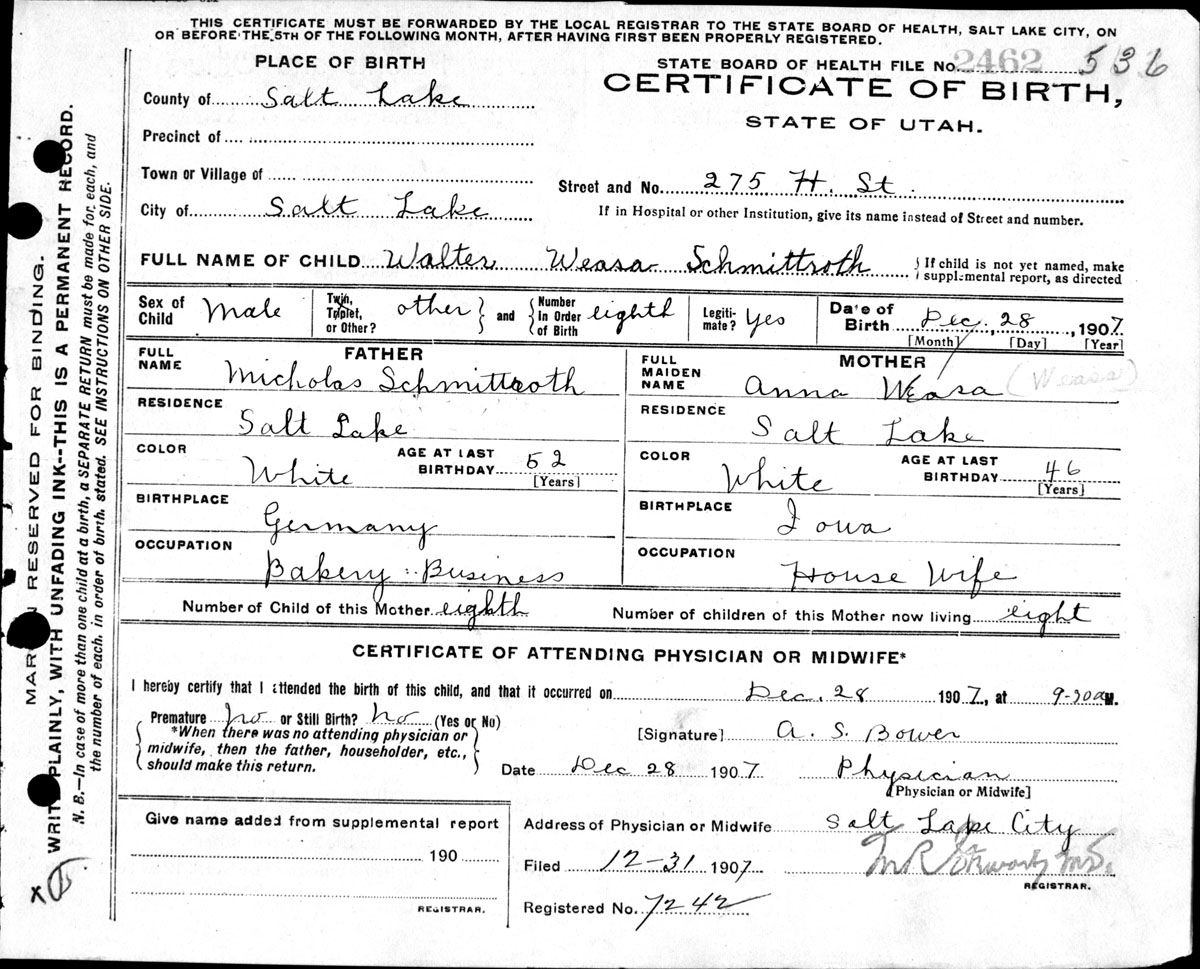 THIS CERTIFICATE MUST BE FORWARDED BY THE LOCAL REGISTRAR TO THE STATE BOARD OF HEALTH, SALT LAKE CITY, ON
OR BEFORE THE 5TH OF THE FOLLOWING MONTH, AFTER HAVING FIRST BEEN PROPERLY REGISTERED.
PLACE OF BIRTH
STATE BOARD OF HEALTH FILE No. 2462 536
CERTIFICATE OF BIRTH,
STATE OF UTAH.
County of Salt Lake
Precinct of
Town or Village of
Street and No. 275 H. St.
City of Salt Lake
If in Hospital or other Institution, give its name instead of Street and number.
FULL NAME OF CHILD Walter Weasa Schmittroth
{If child is not yet named, make
supplemental report, as directed
Sex of Child Male
Twin, Triplet, or Other? other
and
Number In Order of Birth eighth
Legiti-mate? Yes
Date of Birth Dec, 28, 1907
[Month] [Day] [Year]
FATHER
FULL NAME Nicholas Schmittroth
RESIDENCE Salt Lake
COLOR White
AGE AT LAST BIRTHDAY 52
[Years]
BIRTHPLACE Germany
OCCUPATION Bakery Business
MOTHER
FULL MAIDEN NAME Anna Weasa (Weasa)
RESIDENCE Salt Lake
COLOR White
AGE AT LAST BIRTHDAY 46
[Years]
BIRTHPLACE Iowa
OCCUPATION House Wife
Number of Child of this Mother eighth
Number of children of this Mother now living eight
CERTIFICATE OF ATTENDING PHYSICIAN OR MIDWIFE*
I hereby certify that I attended the birth of this child, and that it occurred on Dec, 28 1907, at M.
Premature No or Still Birth? No (Yes or No)
*When there was no attending physician or
midwife, then the father, householder, etc.,
should make this return.
[Signature] A. S. Bower
Date Dec 28 1907 Physician
[Physician or Midwife]
Give name added from supplemental report
190
REGISTRAR.
Address of Physician or Midwife Salt Lake City
Filed 12-31 1907
REGISTRAR.
Registered No. 7242
MARGIN RESERVED FOR BINDING.
WRITE PLAINLY, WITH UNFADING INK--THIS IS A PERMANENT RECORD.
N. B.—In case of more than one child at a birth, a SEPARATE RETURN must be made for each, and
the number of each, in order of birth, stated. SEE INSTRUCTIONS ON OTHER SIDE.